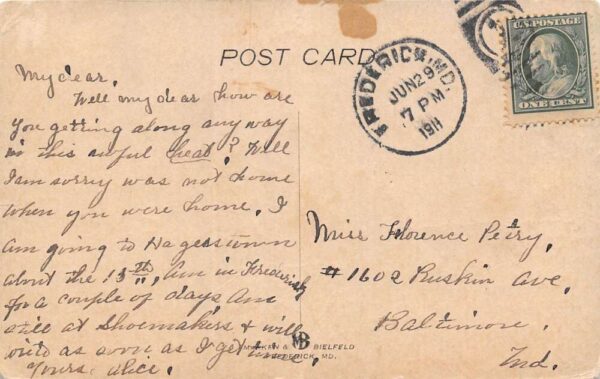 POST CARD
FREDERICK, MD.
JUN 29
7 PM
1911
U.S. POSTAGE
ONE CENT
My dear,
Well my dear how are
you getting along any way
in this awful heat? Well
I am sorry was not home
when you were home. I
am going to Hagerstown
about the 15th, Am in Frederick
for a couple of days, Am
still at Shoemakers & will
write as soon as I get time.
Yours, Alice.
Miss Florence Petry,
# 1602 Ruskin Ave,
Baltimore,
Md.
MB
& BIELFELD
FREDERICK, MD.